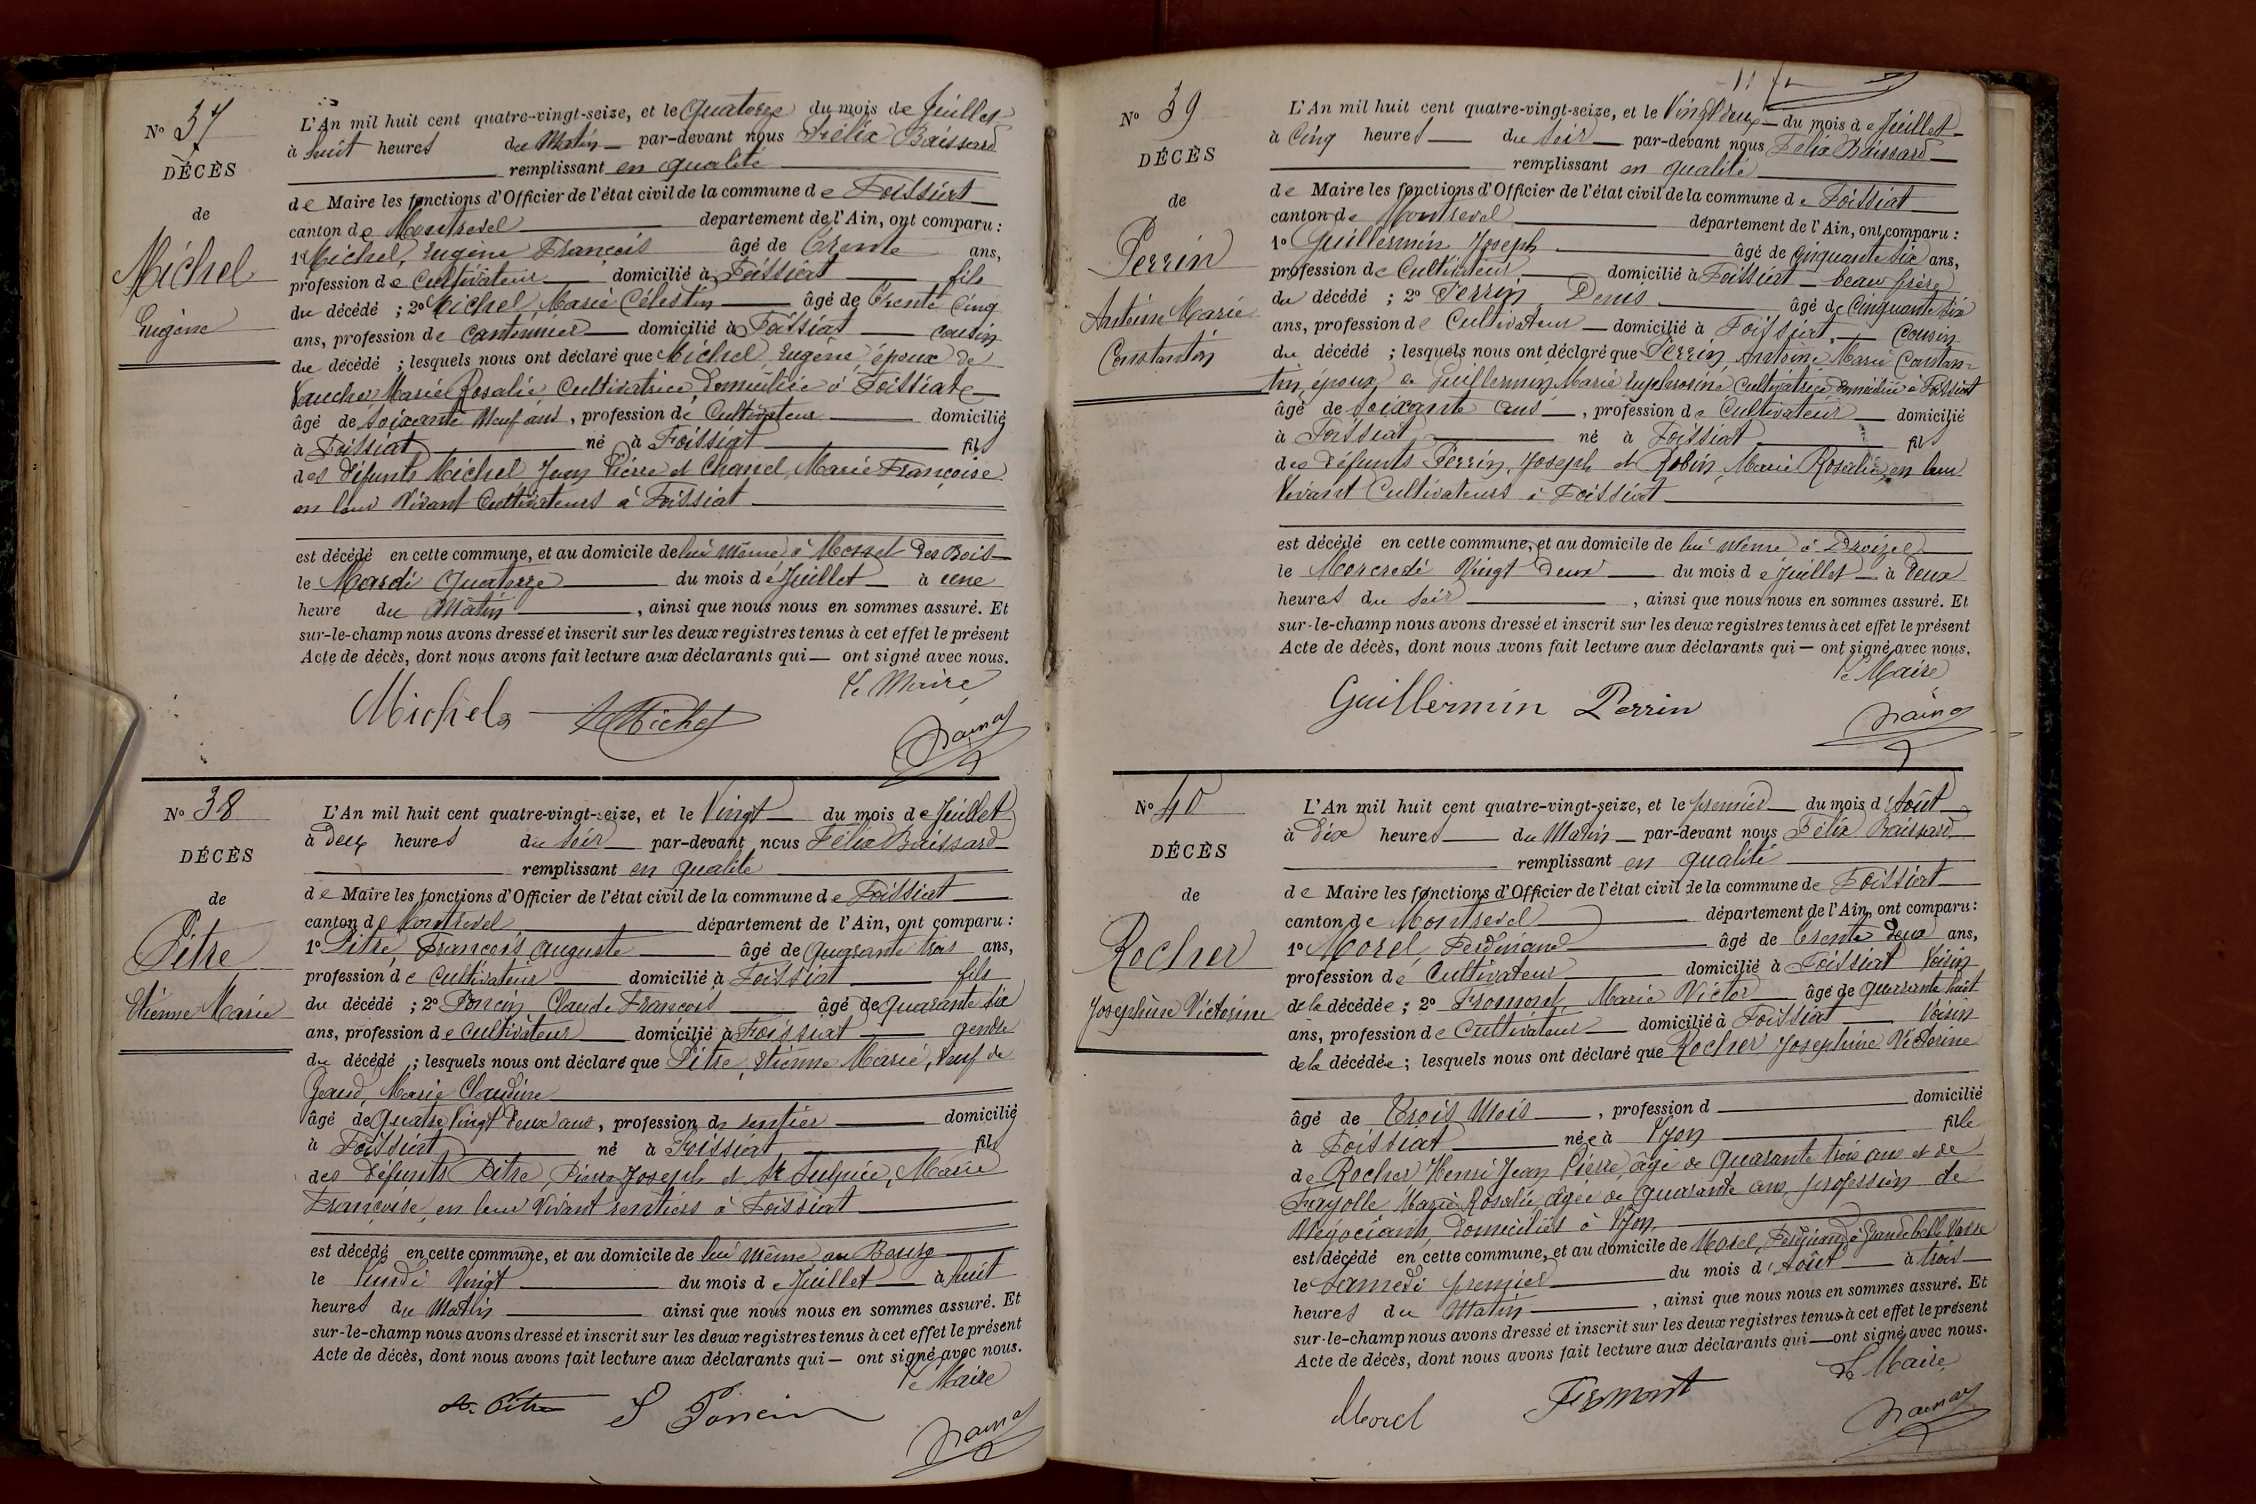 No 37
DÉCÈS
de
Michel
Eugène
L'An mil huit cent quatre-vingt-seize, et le Quatorze du mois de Juillet
à huit heures du Matin par-devant nous Félix Baissard
remplissant en qualité
de Maire les fonctions d'Officier de l'état civil de la commune de Foissiat
canton de Montrevel département de l'Ain, ont comparu :
1o Michel, Eugène François âgé de Trente ans,
profession de Cultivateur domicilié à Foissiat fils
du décédé ; 2o Michel, Marie Célestin âgé de Trente Cinq
ans, profession de Cantonnier domicilié à Foissiat cousin
du décédé ; lesquels nous ont déclaré que Michel, Eugène, époux de
Vaucher Marie Rosalie, Cultivatrice, Domiciliée à Foissiat
âgé de soixante Neuf ans, profession de Cultivateur domicilié
à Foissiat né à Foissiat fils
des défunts Michel Jean Pierre et Chanel, Marie Françoise
en leur Vivant Cultivateurs à Foissiat
est décédé en cette commune, et au domicile de lui même à Des Bois
le Mardi Quatorze du mois de Juillet à une
heure du Matin, ainsi que nous nous en sommes assuré. Et
sur-le-champ nous avons dressé et inscrit sur les deux registres tenus à cet effet le présent
Acte de décès, dont nous avons fait lecture aux déclarants qui — ont signé avec nous.
Le Maire
Michel Michel
No 38
DÉCÈS
de
Pitre
Etienne Marie
L'An mil huit cent quatre-vingt-seize, et le Vingt du mois de Juillet
à deux heures du soir par-devant nous Félix Baissard
remplissant en qualité
de Maire les fonctions d'Officier de l'état civil de la commune de Foissiat
canton de Montrevel département de l'Ain, ont comparu :
1o Pitre, François Auguste âgé de Quarante trois ans,
profession de Cultivateur domicilié à Foissiat fils
du décédé ; 2o Poncin, Claude François âgé de quarante six
ans, profession de Cultivateur domicilié à Foissiat gendre
du décédé ; lesquels nous ont déclaré que Pitre, Etienne Marie, Veuf de
Marie Claudine
âgé de Quatre Vingt Deux ans, profession de rentier domicilié
à Foissiat né à Foissiat fils
des défunts Pitre, Pierre Joseph et St Sulpice, Marie
Françoise, en leur Vivant rentiers à Foissiat
est décédé en cette commune, et au domicile de lui même au Bourg
le Lundi Vingt du mois de Juillet à huit
heures du Matin ainsi que nous nous en sommes assuré. Et
sur-le-champ nous avons dressé et inscrit sur les deux registres tenus à cet effet le présent
Acte de décès, dont nous avons fait lecture aux déclarants qui — ont signé avec nous.
Le Maire
Pitre Poncin
No 39
DÉCÈS
de
Perrin
Antoine Marie
Constantin
L'An mil huit cent quatre-vingt-seize, et le Vingt deux du mois de Juillet
à Cinq heures du soir par-devant nous Félix Baissard
remplissant en qualité
de Maire les fonctions d'Officier de l'état civil de la commune de Foissiat
canton de Montrevel département de l'Ain, ont comparu :
1o Guillermin Joseph âgé de Cinquante six ans,
profession de Cultivateur domicilié à Foissiat beau frère
du décédé ; 2o Perrin Denis âgé de Cinquante six
ans, profession de Cultivateur domicilié à Foissiat, Cousin
du décédé ; lesquels nous ont déclaré que Perrin, Antoine Marie Constan=
tin, époux de Guillermin Marie Euphrosine Cultivatrice domiciliée à Foissiat
âgé de soixante ans, profession de Cultivateur domicilié
à Foissiat né à Foissiat fils
des défunts Perrin, Joseph et Robin, Marie Rosalie, en leur
Vivant Cultivateurs à Foissiat
est décédé en cette commune, et au domicile de lui même à
le Mercredi Vingt Deux du mois de Juillet à Deux
heures du soir, ainsi que nous nous en sommes assuré. Et
sur-le-champ nous avons dressé et inscrit sur les deux registres tenus à cet effet le présent
Acte de décès, dont nous avons fait lecture aux déclarants qui — ont signé avec nous.
Le Maire
Guillermin Perrin
No 40
DÉCÈS
de
Rocher
Joséphine Victorine
L'An mil huit cent quatre-vingt-seize, et le premier du mois d'Août
à dix heures du Matin par-devant nous Félix Baissard
remplissant en qualité
de Maire les fonctions d'Officier de l'état civil de la commune de Foissiat
canton de Montrevel département de l'Ain, ont comparu :
1o Morel, Ferdinand âgé de Trente Deux ans,
profession de Cultivateur domicilié à Foissiat Voisin
de la décédée ; 2o Fromont, Marie Victor âgé de quarante huit
ans, profession de Cultivateur domicilié à Foissiat Voisin
de la décédée ; lesquels nous ont déclaré que Rocher Joséphine Victorine
âgé de Trois Mois, profession d domicilié
à Foissiat née à Lyon fille
de Rocher Henri Jean Pierre âgé de Quarante trois ans et de
Fayolle Marie Rosalie âgée de quarante ans, profession de
Négociants, domiciliés à Lyon
est décédé en cette commune, et au domicile de Morel, Ferdinand à Grandebelle Vavre
le Samedi premier du mois d'Août à trois
heures du Matin, ainsi que nous nous en sommes assuré. Et
sur-le-champ nous avons dressé et inscrit sur les deux registres tenus à cet effet le présent
Acte de décès, dont nous avons fait lecture aux déclarants qui — ont signé avec nous.
Le Maire
Morel Fromont